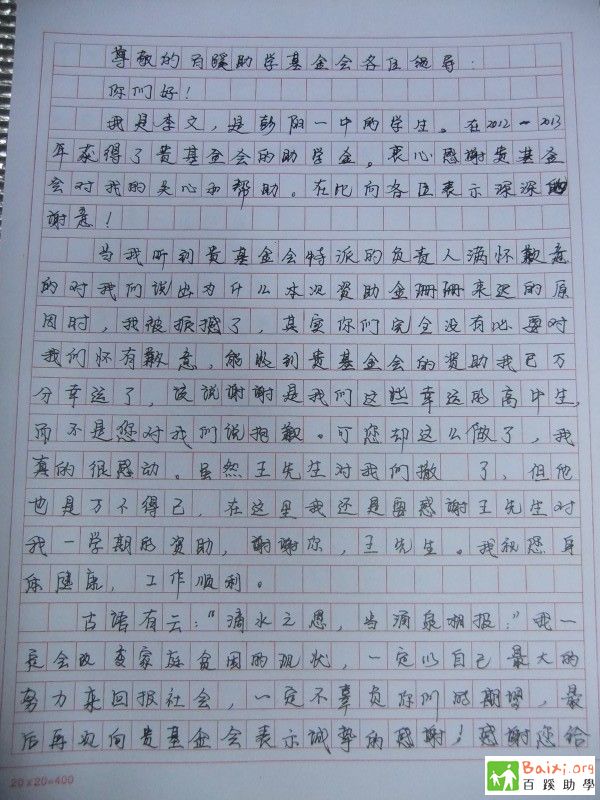 尊敬的百蹊助学基金会各位领导：
你们好！
我是李文，是彭阳一中的学生。在2012—2013
年获得了贵基金会的助学金。衷心感谢贵基金
会对我的关心和帮助。在此向各位表示深深的
谢意！
当我听到贵基金会特派的负责人满怀歉意
的对我们说出为什么本次资助金珊珊来迟的原
因时，我被振撼了，其实你们完全没有必要对
我们怀有歉意，能收到贵基金会的资助我已万
分幸运了，该说谢谢是我们这些幸运的高中生，
而不是您对我们说抱歉。可您却这么做了，我
真的很感动。虽然王先生对我们撤 了，但他
也是万不得已，在这里我还是要感谢王先生对
我一学期的资助，谢谢你，王先生。我祝您身
体健康，工作顺利。
古语有云："滴水之恩，当涌泉相报："我一
定会改变家族贫困的现状，一定以自己最大的
努力来回报社会，一定不辜负你们的期望，最
后再次向贵基金会表示诚挚的感谢！感谢您给
20×20=400
Baixi.org
百蹊助學